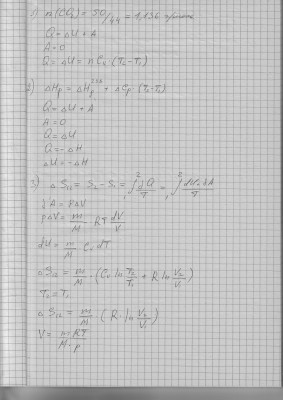 1) n(CO₂) = 50/44 = 1,136
Q = ΔU + A
A = 0
Q = ΔU = n Cᵥ · (T₂-T₁)
2) ΔHp = ΔHp²⁹⁸ + nCp · (T₂-T₁)
Q = ΔU + A
A = 0
Q = ΔU
Q = -ΔH
ΔU = -ΔH
3) ΔS₁₂ = S₂ - S₁ = ₁∫² dQ/T = ₁∫² dU+dA/T
δA = pdV
pdV = m/M RT dV/V
dU = m/M · Cᵥ dT
ΔS₁₂ = m/M · (Cᵥ ln T₂/T₁ + R ln V₂/V₁)
T₂ = T₁
ΔS₁₂ = m/M · (R · ln V₂/V₁)
V = mRT/M·p